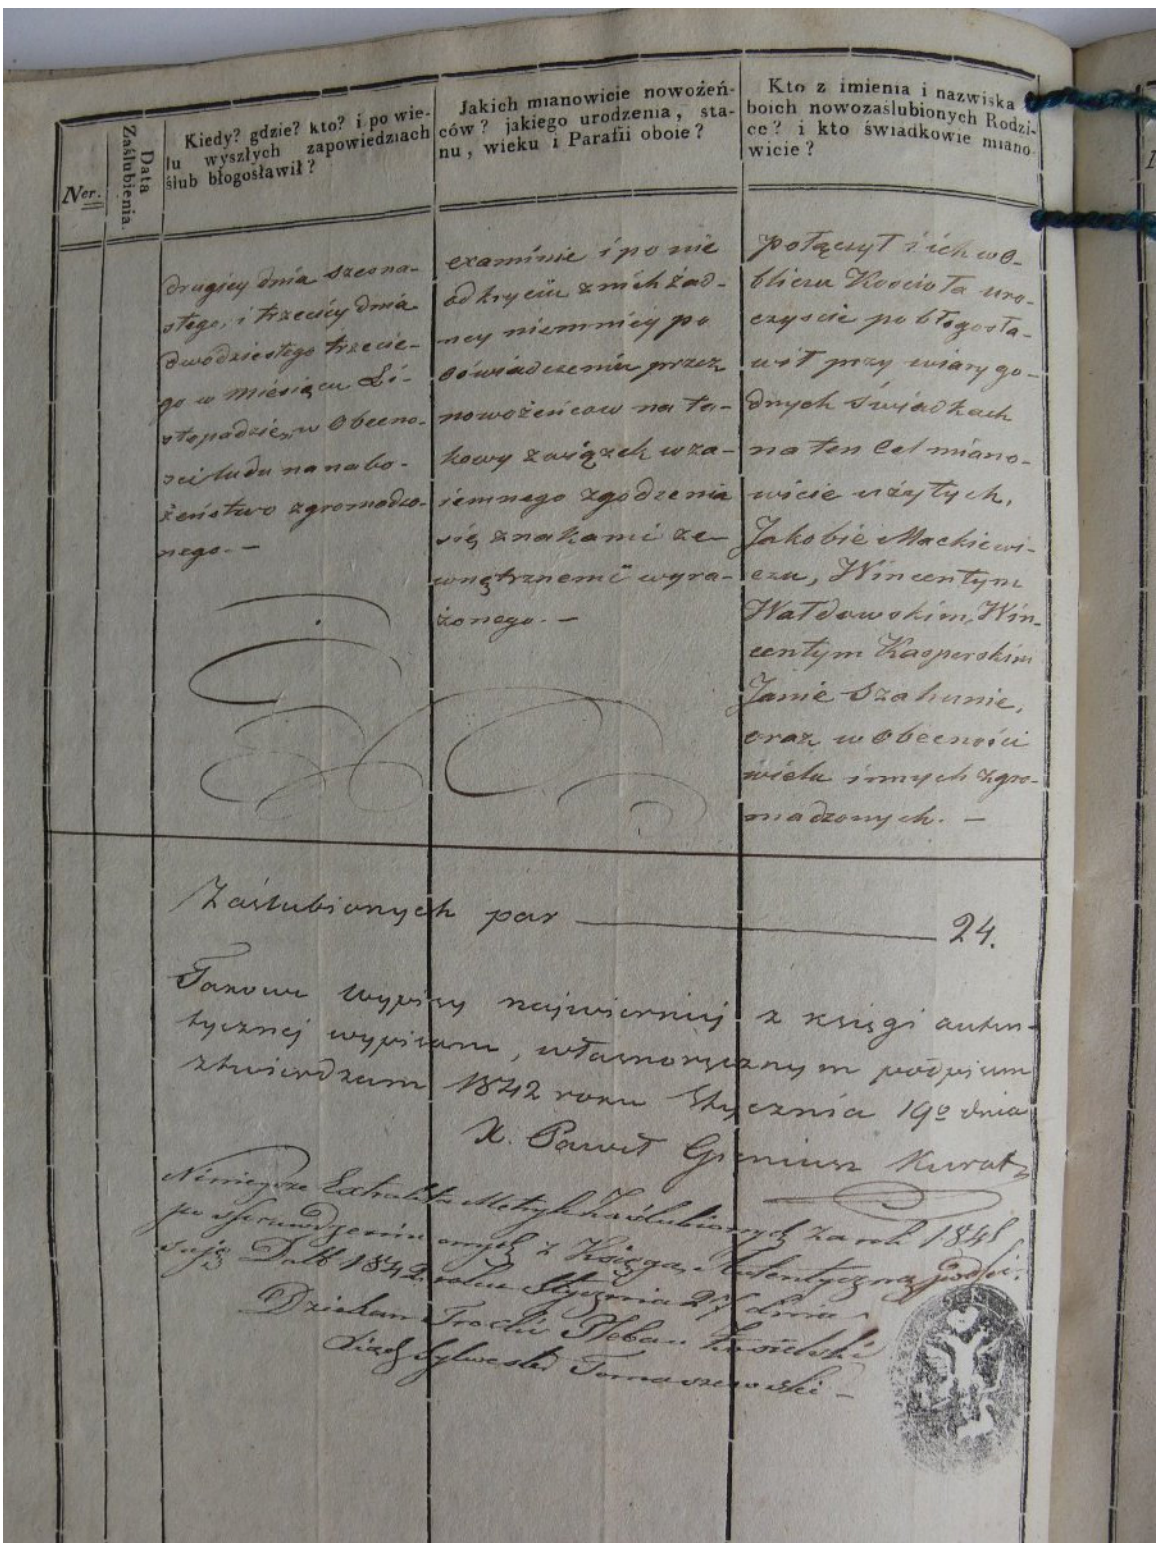 Ner.
Data
Zaślubienia.
Kiedy? gdzie? kto? i po wie-
lu wyszłych zapowiedziach
ślub błogosławił?
Jakich mianowicie nowożeń-
ców? jakiego urodzenia, sta-
nu, wieku i Parafii oboie?
Kto z imienia i nazwiska
boich nowozaślubionych Rodzi-
ce? i kto świadkowie miano
wicie?
drugiey dnia szesna-
stego, i trzeciey dnia
dwódziestego trzecie-
go w miesiącu Li-
stopadzie, w obecno-
sci ludu na nabo-
żeństwo zgromadzo-
nego. —
examinie i po nie
odkryciu z nich żad-
ney niemniey po
oświadczeniu przez
nowożeńcow na ta-
kowy związek wza-
iemnego zgodzenia
się znakami ze-
wnętrznemi wyra-
żonego. —
połączył i ich wo-
bliczu Kościoła uro-
czyscie pobłogosła-
wił przy wiarygo-
dnych świadkach
na ten cel miano-
wicie użytych,
Jakobie Mackiewi-
czu, Wincentym
Wałdowskim, Win-
centym Kasperskim
Janie Szahunie,
oraz w obecności
wielu innych zgro-
madzonych. —
Zaślubionych par — 24.
Takowe wypisy najwierniej z księgi auten-
tycznej wypisane, własnoręcznym podpisem
ztwierdzam 1842 roku Stycznia 19o dnia
X. Paweł Gieniusz Kurat
Ninieysze Extrakta Metryk Zaślubionych za rok 1841
po sprawdzeniu onych z Księgą Autentyczną podpi-
suję Datt 1842 roku Stycznia 27 dnia
Dziekan Trocki Pleban
Xiądz Sylwester Tomaszewski —